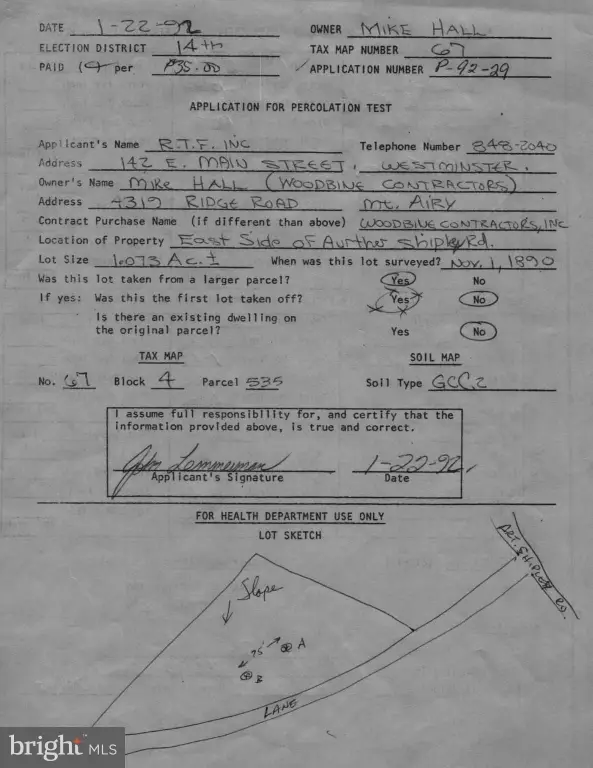 DATE 1-22-92 OWNER MIKE HALL
ELECTION DISTRICT 14th TAX MAP NUMBER 67
PAID per $35.00 APPLICATION NUMBER P-92-29
APPLICATION FOR PERCOLATION TEST
Applicant's Name R.T.F. INC Telephone Number 848-2040
Address 142 E. MAIN STREET, WESTMINSTER.
Owner's Name MIKE HALL (WOODBINE CONTRACTORS)
Address 4319 RIDGE ROAD Mt. AIRY
Contract Purchase Name (if different than above) WOODBINE CONTRACTORS, INC
Location of Property East Side of Aurthur Shipley Rd.
Lot Size 1.073 Ac.± When was this lot surveyed? Nov. 1, 1890
Was this lot taken from a larger parcel? Yes No
If yes: Was this the first lot taken off? Yes No
Is there an existing dwelling on
the original parcel? Yes No
TAX MAP SOIL MAP
No. 67 Block 4 Parcel 535 Soil Type GCC2
I assume full responsibility for, and certify that the
information provided above, is true and correct.
John Lemmerman 1-22-92
Applicant's Signature Date
FOR HEALTH DEPARTMENT USE ONLY
LOT SKETCH
ART. SHIPLEY RD.
Slope
75' A
B
LANE
bright MLS